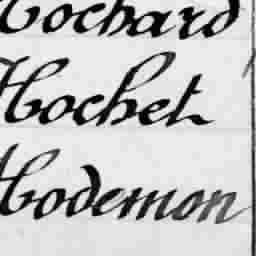 Hochard
Hochet
Hodemon